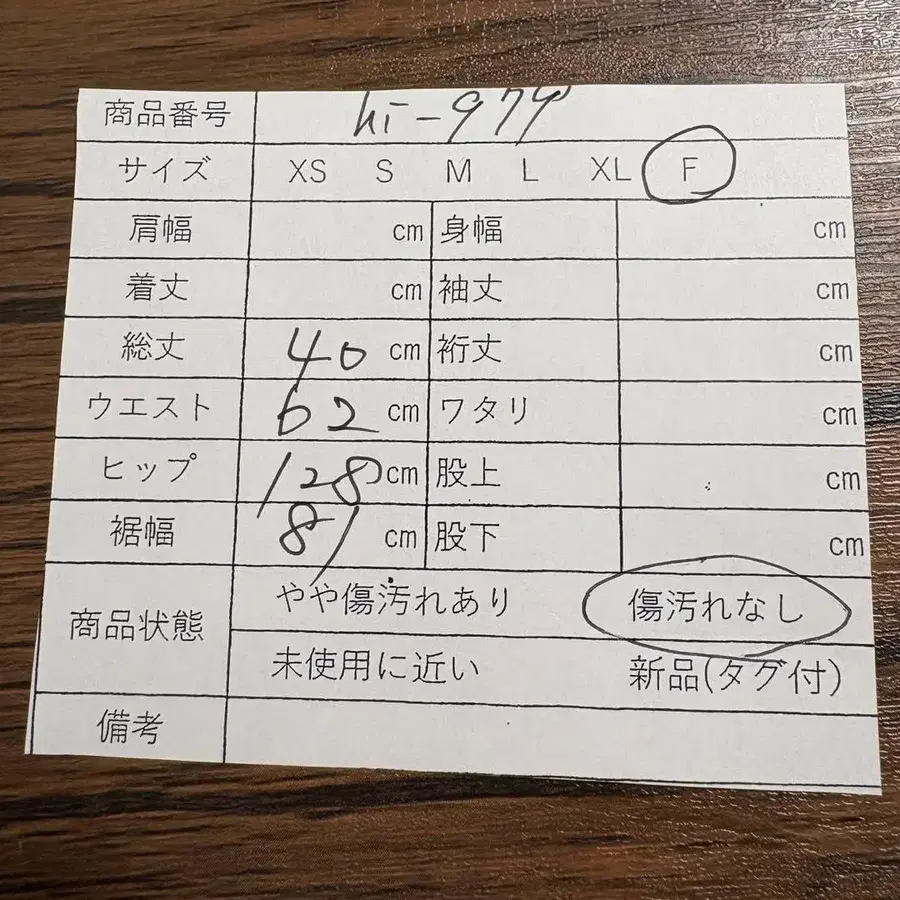 商品番号 hi-979
サイズ XS S M L XL F
肩幅 cm 身幅 cm
着丈 cm 袖丈 cm
総丈 40 cm 裄丈 cm
ウエスト 62 cm ワタリ cm
ヒップ 128 cm 股上 cm
裾幅 81 cm 股下 cm
商品状態 やや傷汚れあり 傷汚れなし
未使用に近い 新品(タグ付)
備考